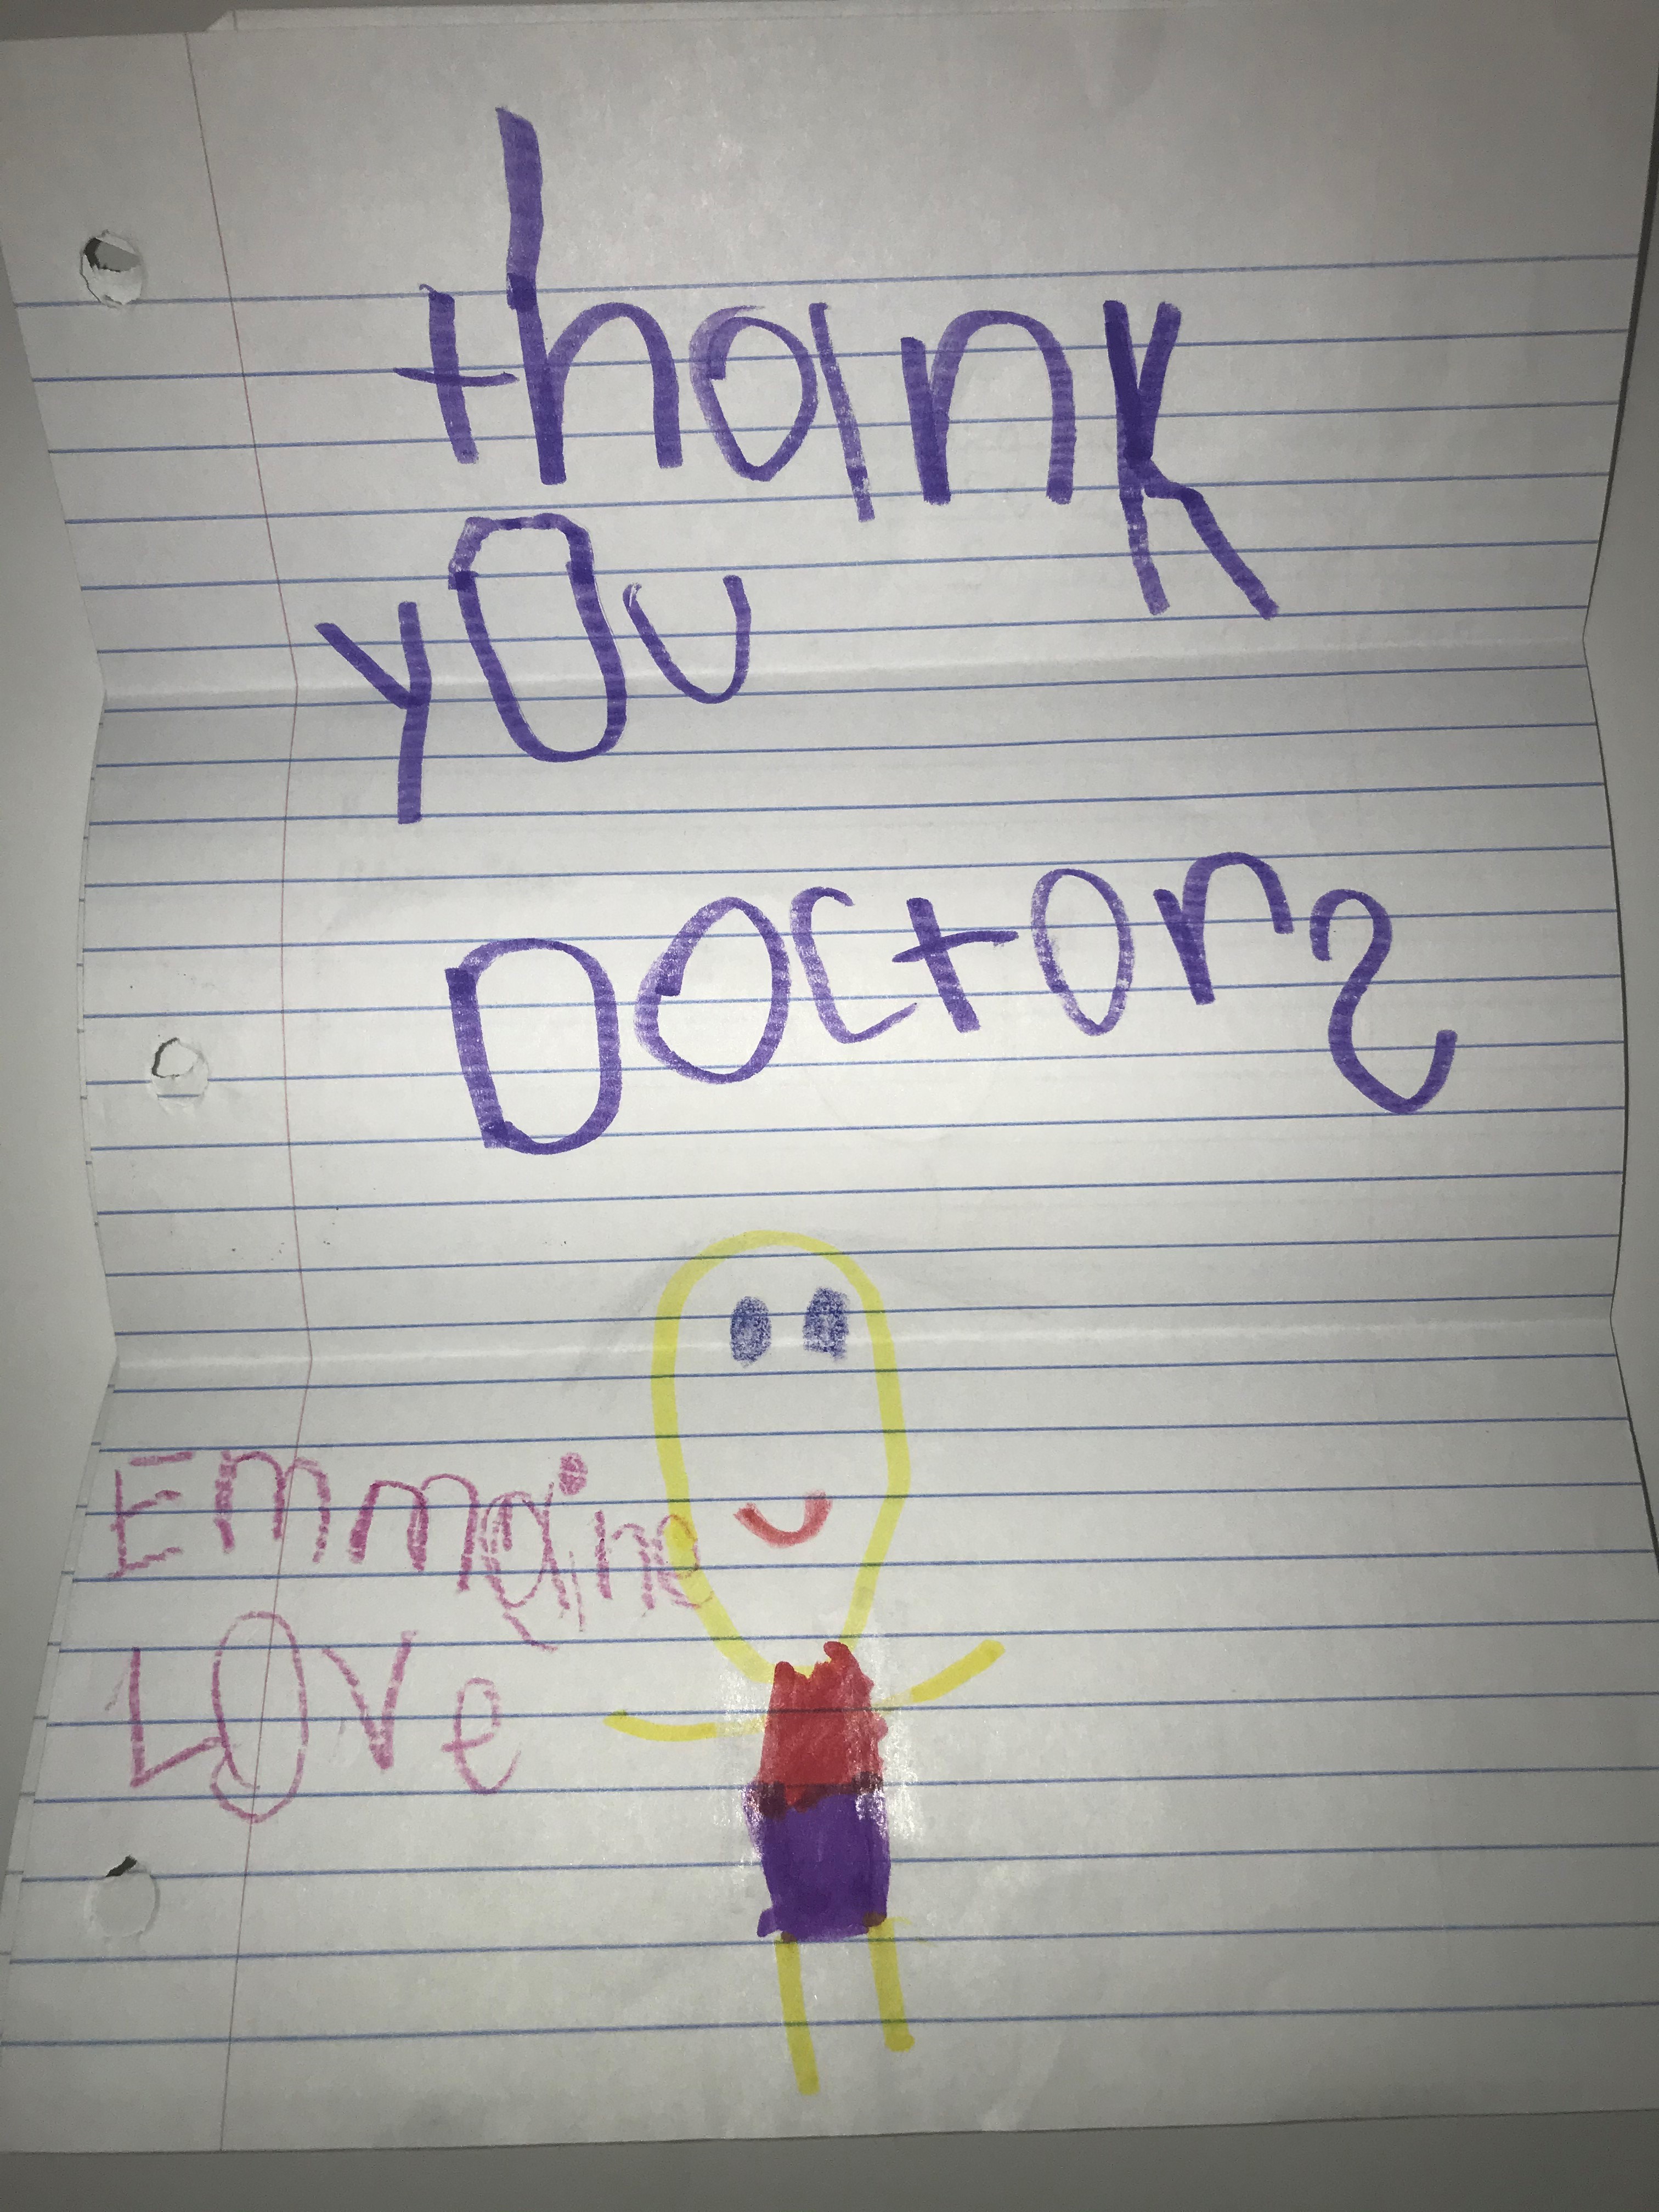 thank
you
Doctors
Emmaine
Love